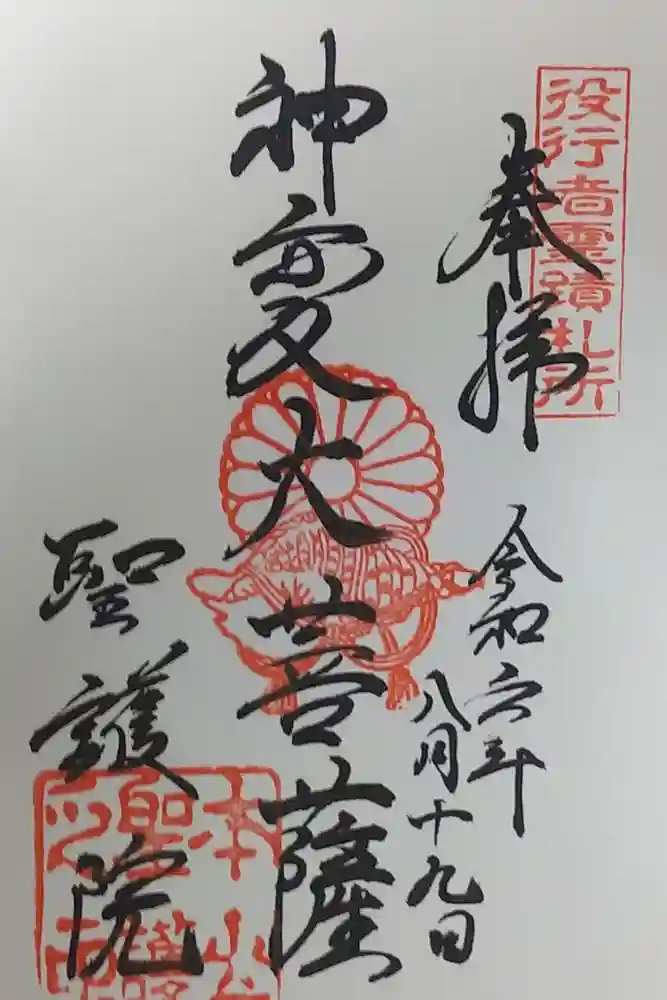 役行者霊蹟札所
奉拝
令和六年
八月十九日
神変大菩薩
聖護院